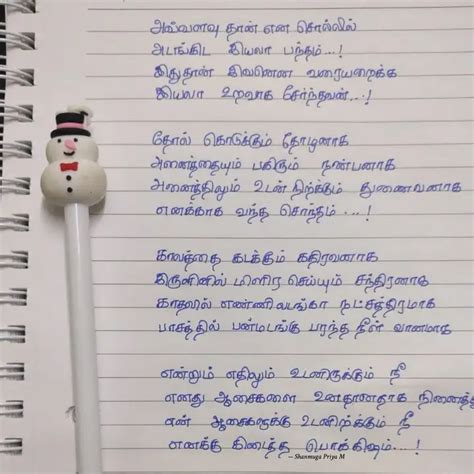 அவ்வளவு தான் என சொல்லில்
அடங்கிட இயலா பந்தம்...!
இதுதான் இவனென வரையறைக்க
இயலா உறவாக சேர்ந்தவன்...!
தோல் கொடுக்கும் தோழனாக
அனைத்தையும் பகிரும் நண்பனாக
அனைத்திலும் உடன் நிற்க்கும் துணைவனாக
எனக்காக வந்த சொந்தம்...!
காலத்தை கடக்கும் கதிரவனாக
இருளினில் மிளிர செய்யும் சந்திரனாக
காதலில் எண்ணிலடங்கா நட்சத்திரமாக
பாசத்தில் பன்மடங்கு பரந்த நீள் வானமாக
என்றும் எதிலும் உடனிருக்கும் நீ
எனது ஆசைகளை உனதானதாக நினைத்து
என் ஆசைகளுக்கு உடனிற்க்கும் நீ
எனக்கு கிடைத்த பொக்கிஷம்...!
Shanmuga Priya M